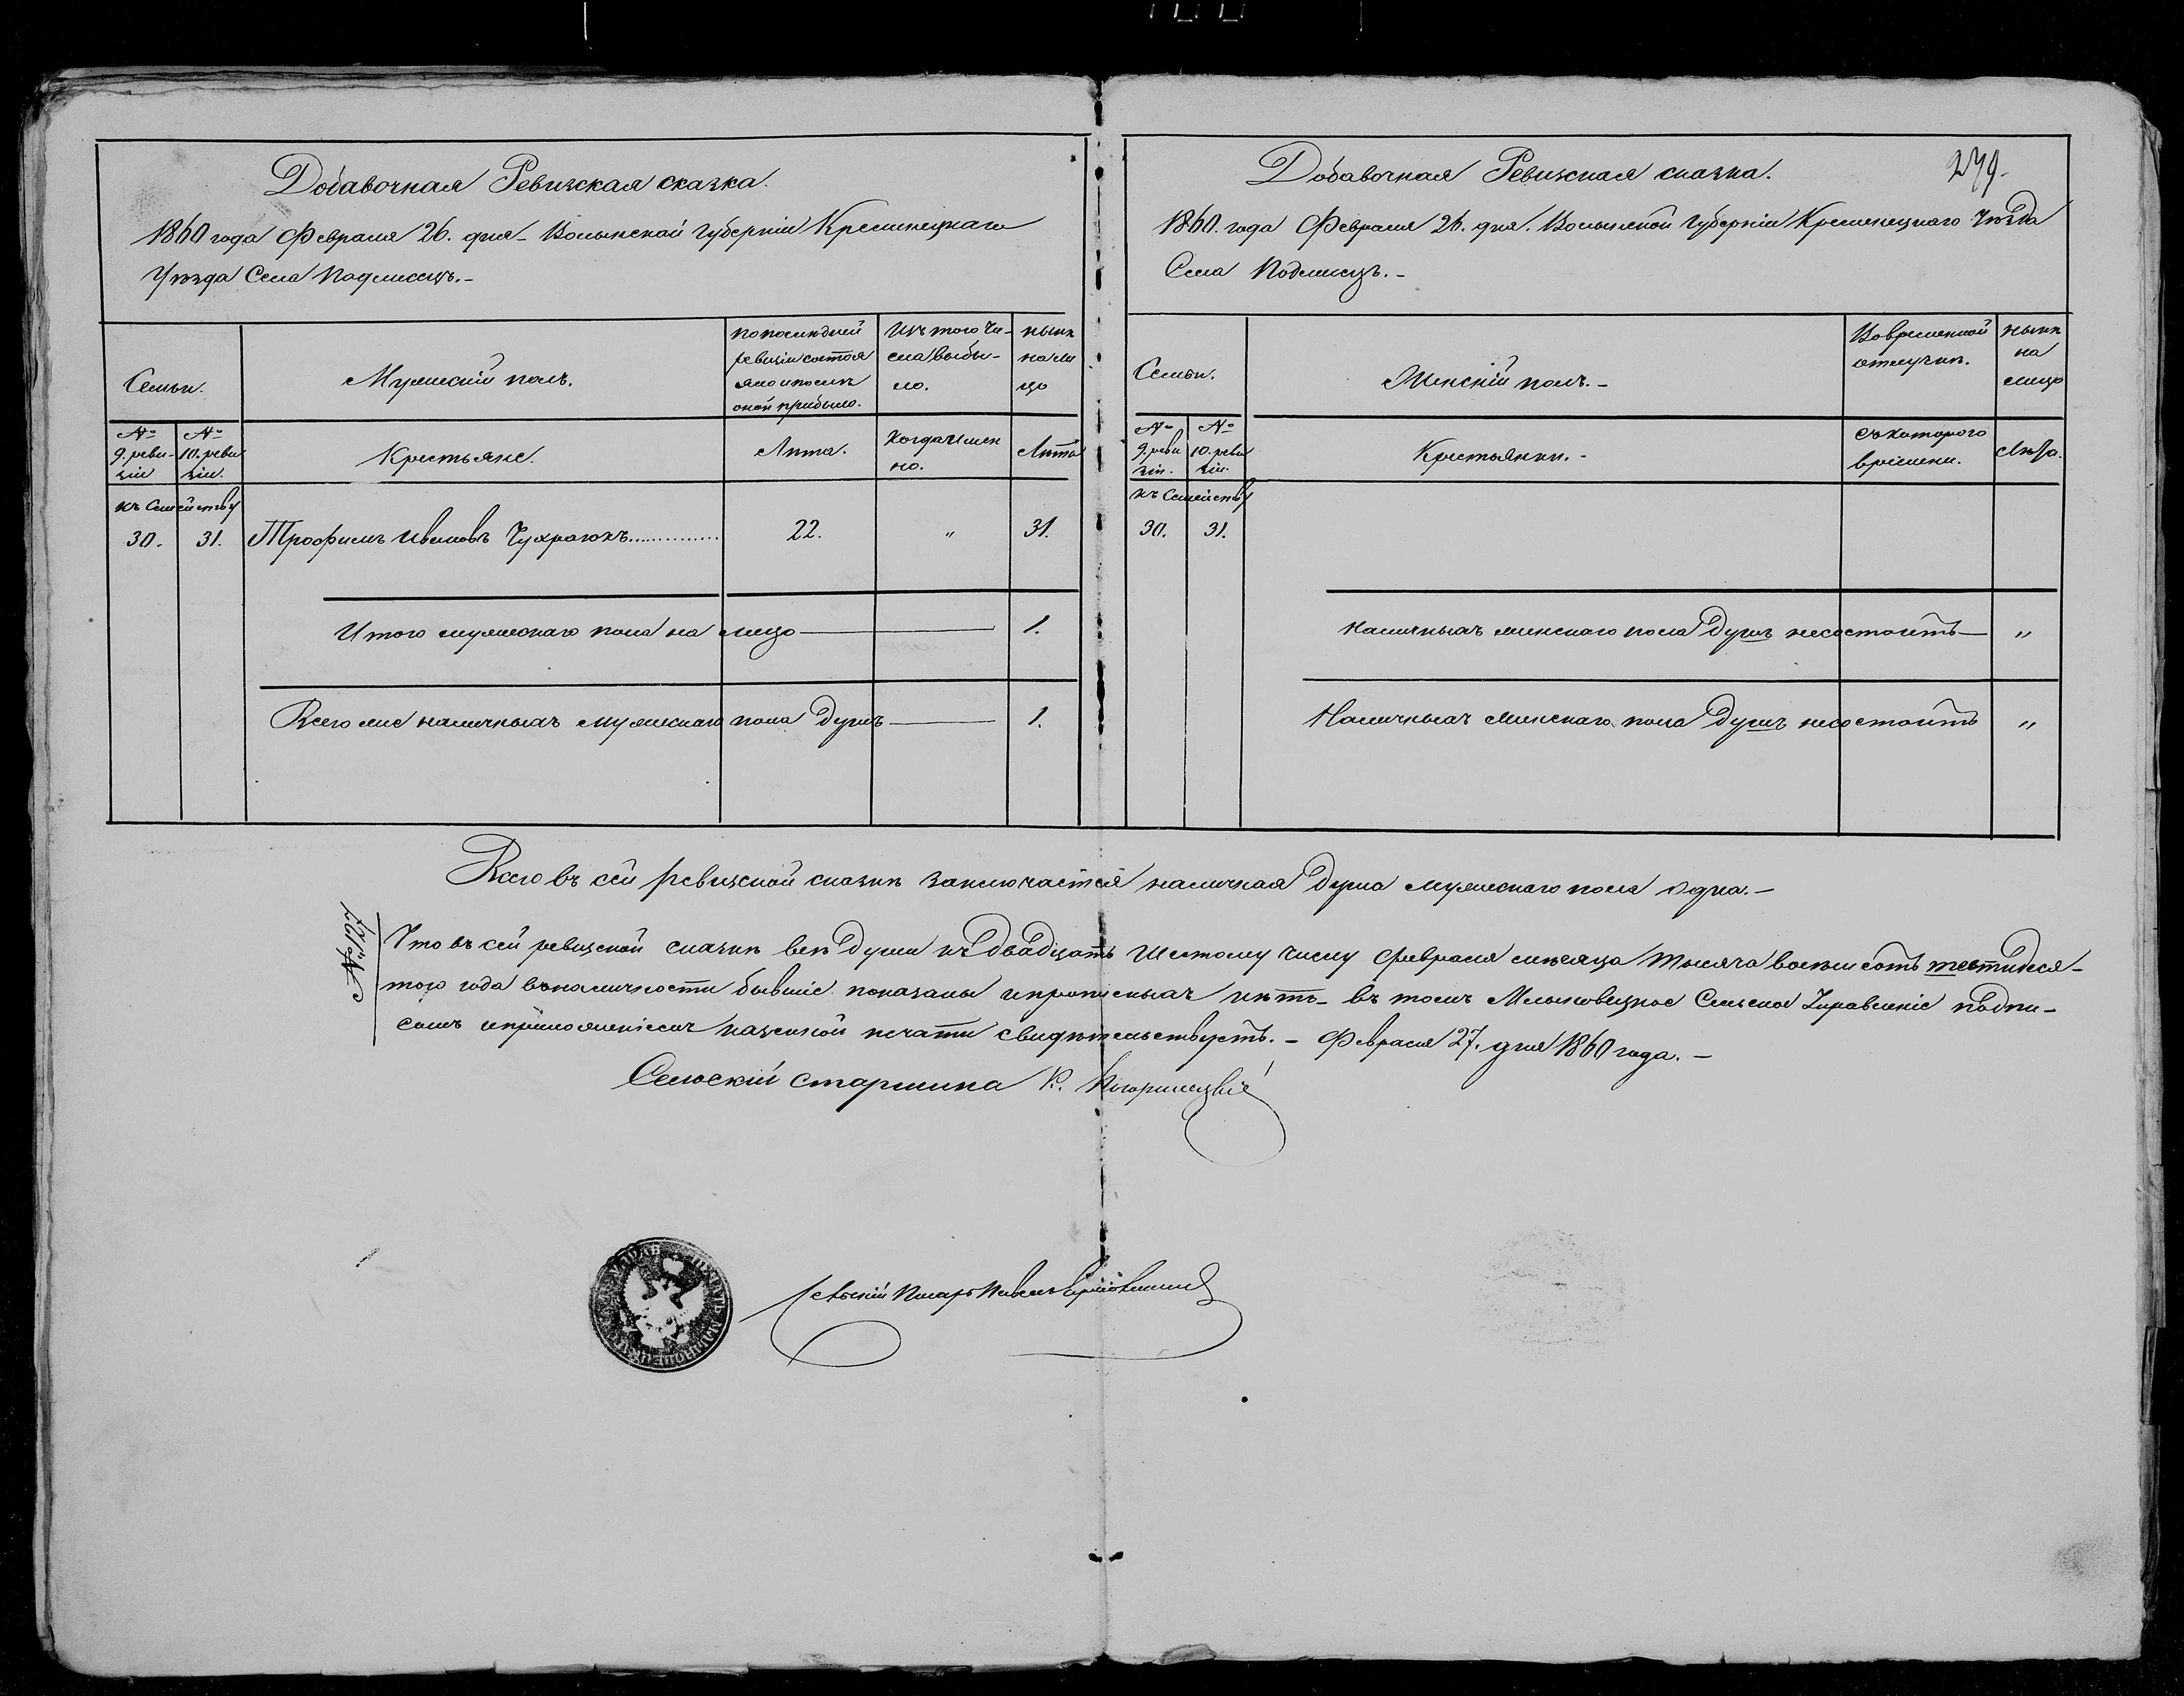 Добавочная Ревизская сказка.
1860 года Февраля 26. дня – Волынской Губерніи Кременецкаго
Уѣзда Села Подлисецъ. –
Семьи.
Мужескій полъ.
По последней
ревизіи состоя
яло и послѣ
оной прибыло.
Изъ того чи-
сла выбы-
ло.
нынѣ
на ли
цо
№
9. реви-
зіи
№
10. реви
зіи.
Крестьяне.
Лѣта.
Когда имен
но.
Лѣта
къ Семейству
30.
31.
Трофимъ Ивановъ Чухраюкъ..............
22.
"
31.
Итого мужескаго пола на лицо —
1.
Всего же наличныхъ мужескаго пола душъ —
1.
Добавочная Ревизская сказка.
279.
1860. года Февраля 26. дня. Волынской Губерніи Кременецкаго Уѣзда
Села Подлисецъ. –
Семьи.
Женскій полъ. –
Во временной
отлучкѣ.
нынѣ
на
лицо
№
9. реви
зіи.
№
10. реви
зіи.
Крестьянки. –
Съ котораго
времени.
Лѣта.
къ Семейству
30.
31.
Наличныхъ женскаго пола душъ несостоитъ —
"
Наличныхъ женскаго пола душъ несостоитъ
"
Всего въ сей ревизской сказкѣ заключается наличная душа мужескаго пола одна. –
№ 127
Что въ сей ревизской сказкѣ всѣ души къ двадцать шестому числу февраля мѣсяца тысяча восемьсотъ шестидеся-
того года въ наличности бывшіе показаны и прописныхъ нѣтъ – въ томъ Млыновецкое Сельское Управленіе подпи-
сомъ и приложеніемъ казенной печати свидѣтельствуетъ. – Февраля 27. дня 1860 года. –
Сельскій старшина К.
Сельскій Писарь Павелъ